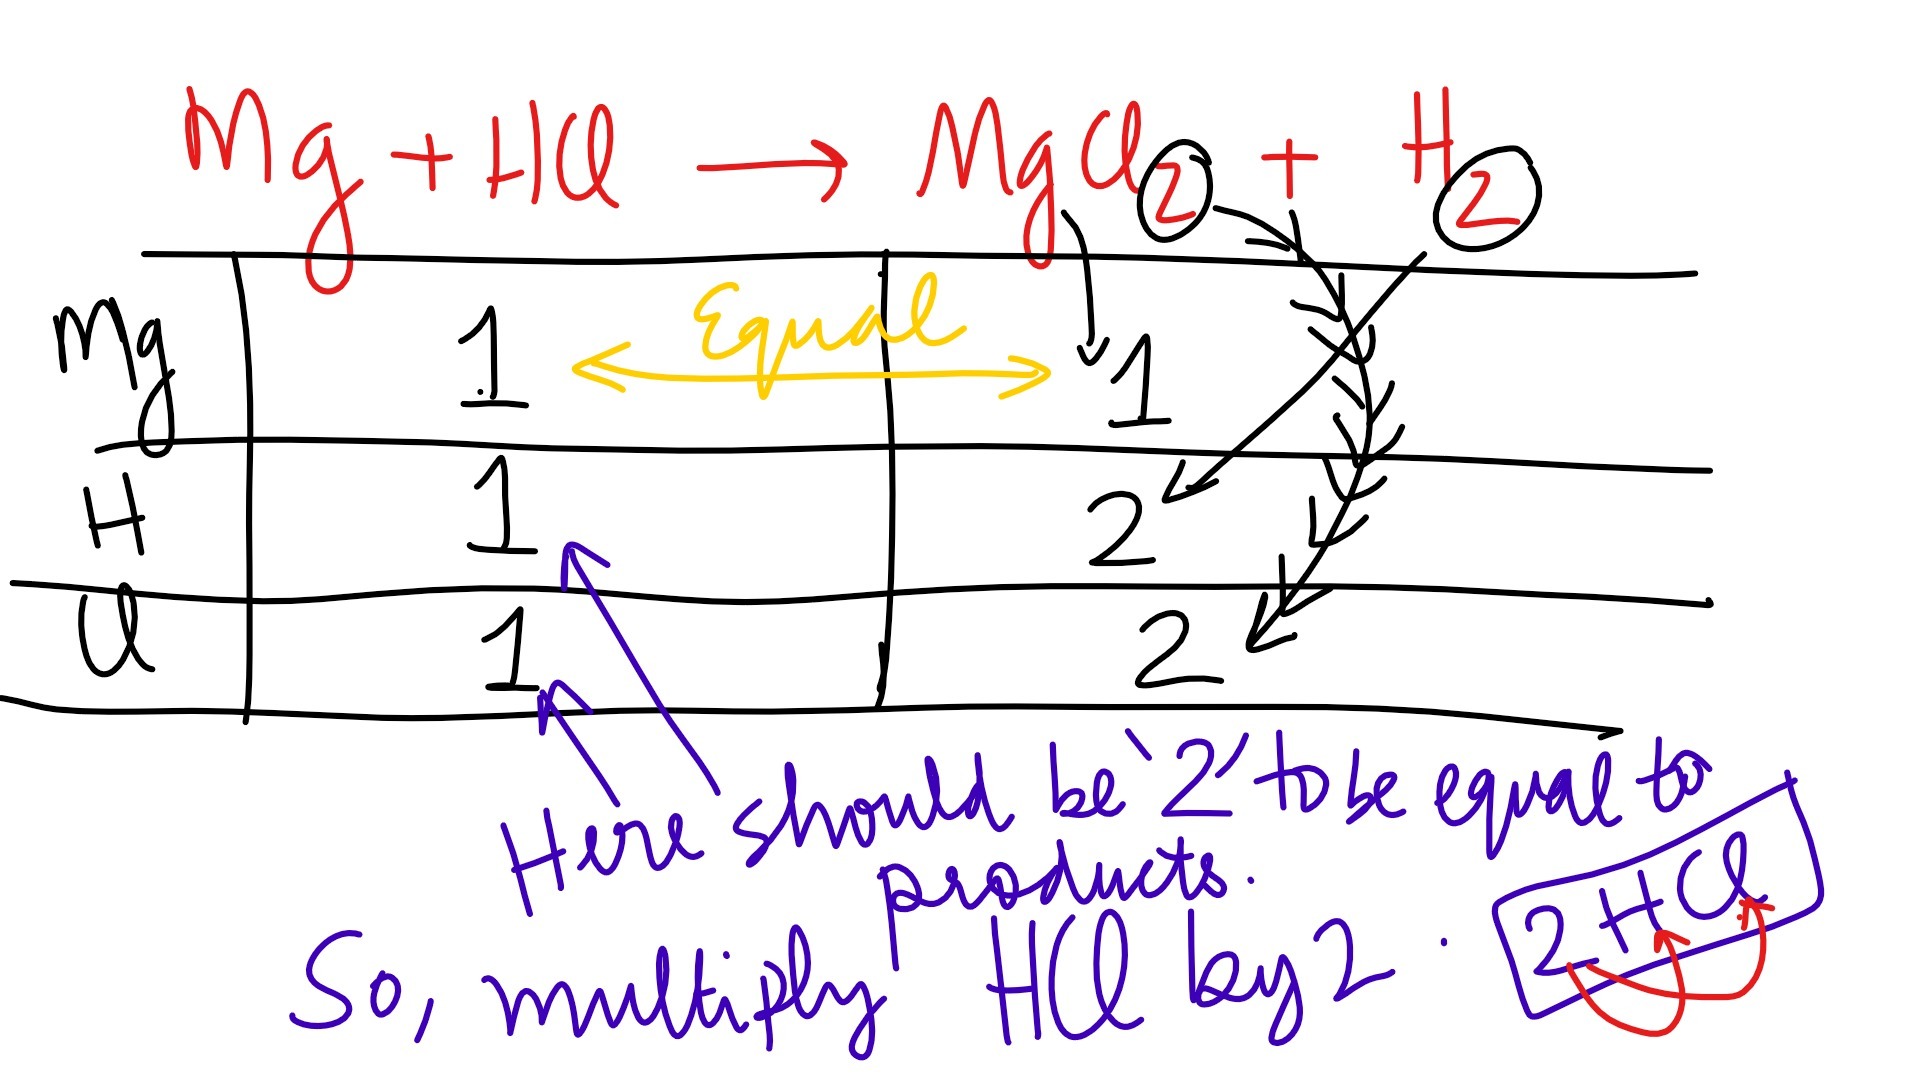 Mg + HCl → MgCl2 + H2
Equal
Mg 1 1
H 1 2
Cl 1 2
Here should be '2' to be equal to
products.
So, multiply HCl by 2. 2HCl